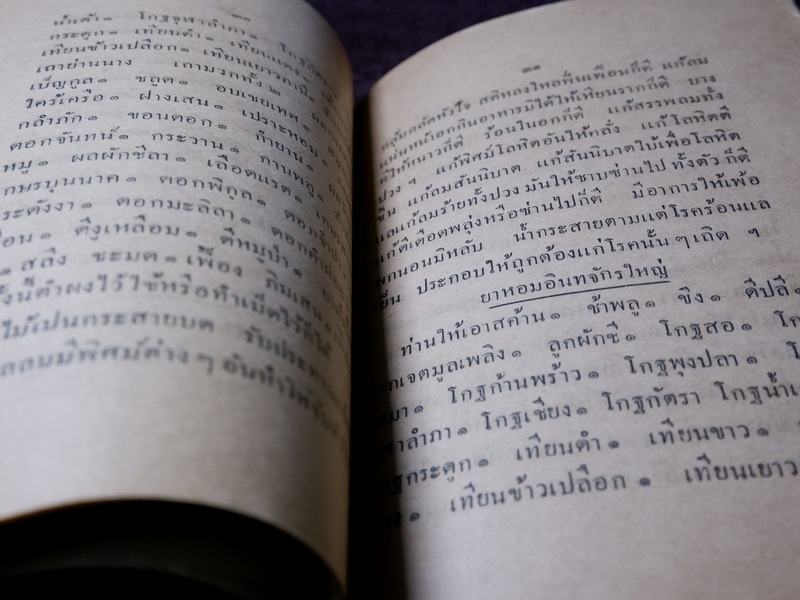 ๓๐
น้ำเต้า ๑ โกฐจุฬาลำภา ๑
กระดูก ๑ เทียนดำ ๑ เทียนแดง ๑
เทียนข้าวเปลือก ๑ เทียนเยาวภานี ๑
เถาย่านนาง เถามวกทั้ง ๒
เบ็ญกูล ๑ ชลูด ๑ อบเชยเทศ ๑
ใคร้เครือ ๑ ฝางเสน ๑ เปราะหอม ๑
กลำภัก ๑ ขอนดอก ๑ กำยาน ๑
ดอกจันทน์ ๑ กระวาน ๑ กานพลู ๑
หมู ๑ ผลผักชีลา ๑ เลือดแรด ๑
เกษรบุนนาค ๑ ดอกพิกุล ๑
กระดังงา ๑ ดอกมะลิลา ๑
ดีงูเหลือม ๑ ดีหมูป่า ๑
๑ สลึง ชะมด ๑ เฟื้อง พิมเสน ๑
ทั้งนี้ตำผงไว้ใช้หรือทำเม็ดไว้ก็ได้
ไม้เป็นกระสายบด รับประทาน
ลมมีพิศม์ต่าง ๆ
๓๑
คลุ้มคลั่งหัวใจ สติหลงไหลฟั่นเฟือนก็ดี แก้ลม
แน่นหน้าอกกินอาหารมิได้ให้เหียนรากก็ดี บาง
ทีให้หนาวก็ดี ร้อนในอกก็ดี แก้สรรพลมทั้ง
ปวง ๆ แก้พิศม์โลหิตอันให้คลั่ง แก้โลหิตตี
ขึ้น แก้ลมสันนิบาต แก้สันนิบาตไข้เพื่อโลหิต
แลแก้ลมร้ายทั้งปวง มันให้ซาบซ่านไป ทั้งตัว ก็ดี
แก้ดีเดือดพลุ่งหรือซ่านไปก็ดี มีอาการให้เพ้อ
พกนอนมิหลับ น้ำกระสายตามแต่โรคร้อนแล
เย็น ประกอบให้ถูกต้องแก่โรคนั้น ๆ เถิด ฯ
ยาหอมอินทจักรใหญ่
ท่านให้เอาสค้าน ๑ ช้าพลู ๑ ขิง ๑ ดีปลี ๑
รากเจตมูลเพลิง ๑ ลูกผักชี ๑ โกฐสอ ๑
๑ โกฐก้านพร้าว ๑ โกฐพุงปลา ๑
จุฬาลำภา ๑ โกฐเชียง ๑ โกฐกัตรา โกฐน้ำเต้า
โกฐกระดูก ๑ เทียนดำ ๑ เทียนขาว ๑
๑ เทียนข้าวเปลือก ๑ เทียนเยาว